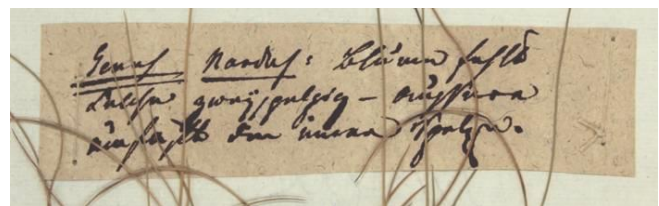 Genus Nardus: Blume fehlt
Kelche zweyspelzig – äussere
umfaßt die innere Spelze.